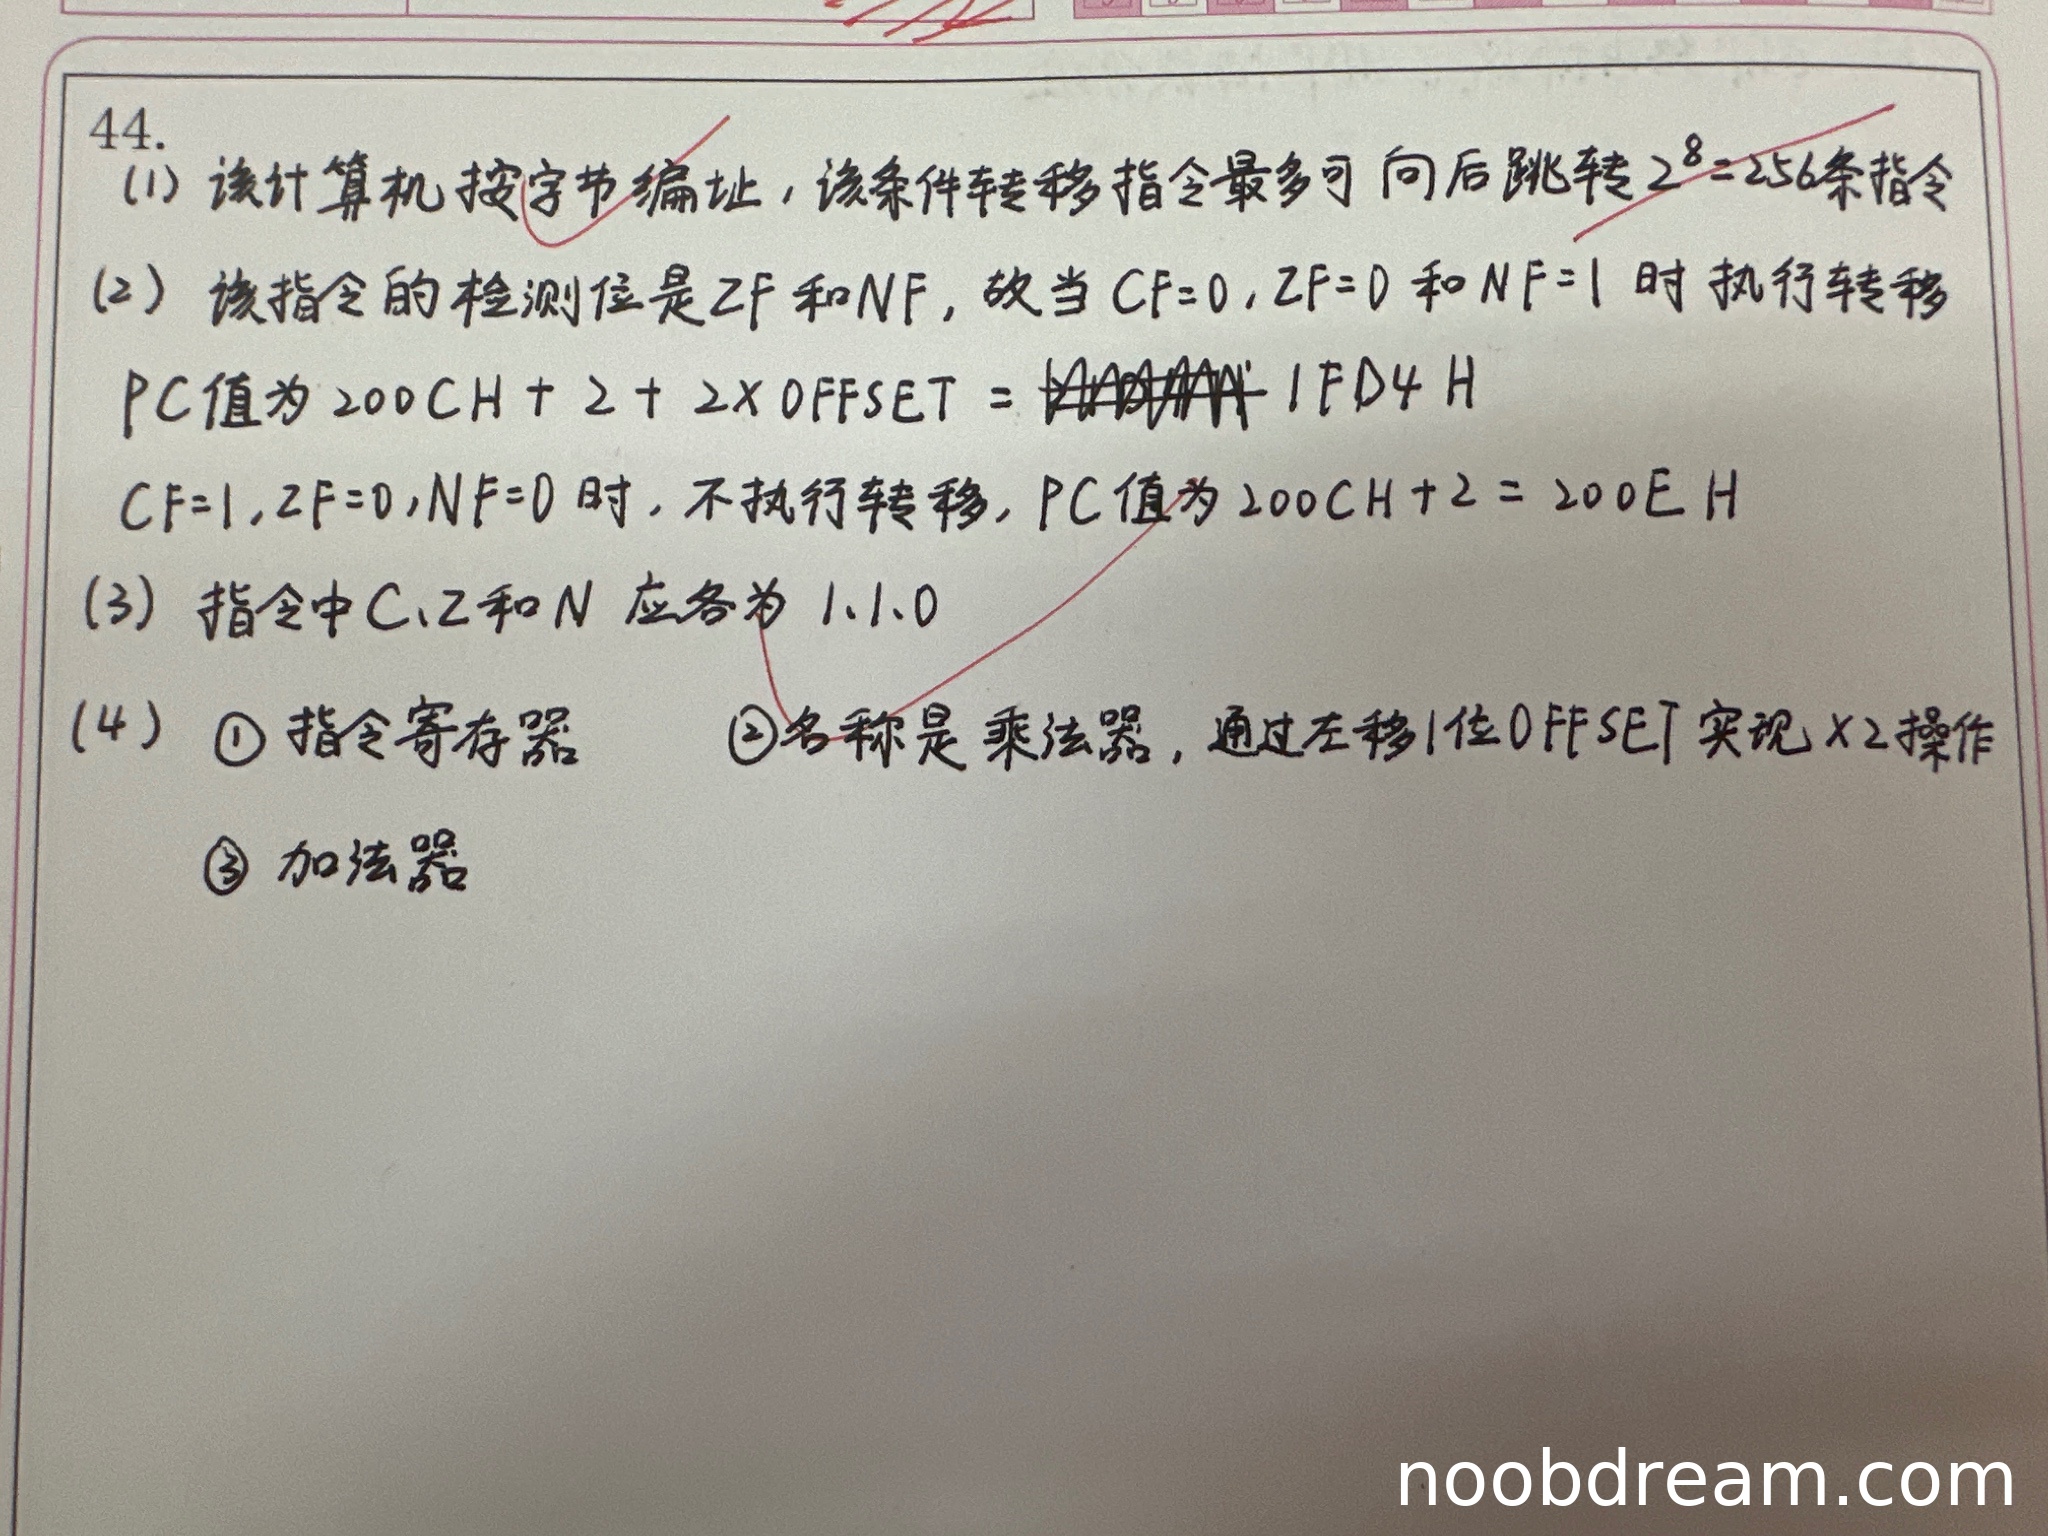 44.
(1) 该计算机按字节编址，该条件转移指令最多可向后跳转 2⁸=256条指令
(2) 该指令的检测位是ZF和NF，故当 CF=0，ZF=0 和 NF=1 时执行转移
PC值为 200CH + 2 + 2×OFFSET = 1FD4H
CF=1，ZF=0，NF=0 时，不执行转移，PC值为200CH+2=200EH
(3) 指令中C、Z和N 应各为 1、1、0
(4) ① 指令寄存器 ②名称是乘法器，通过左移1位OFFSET实现×2操作
③ 加法器
noobdream.com